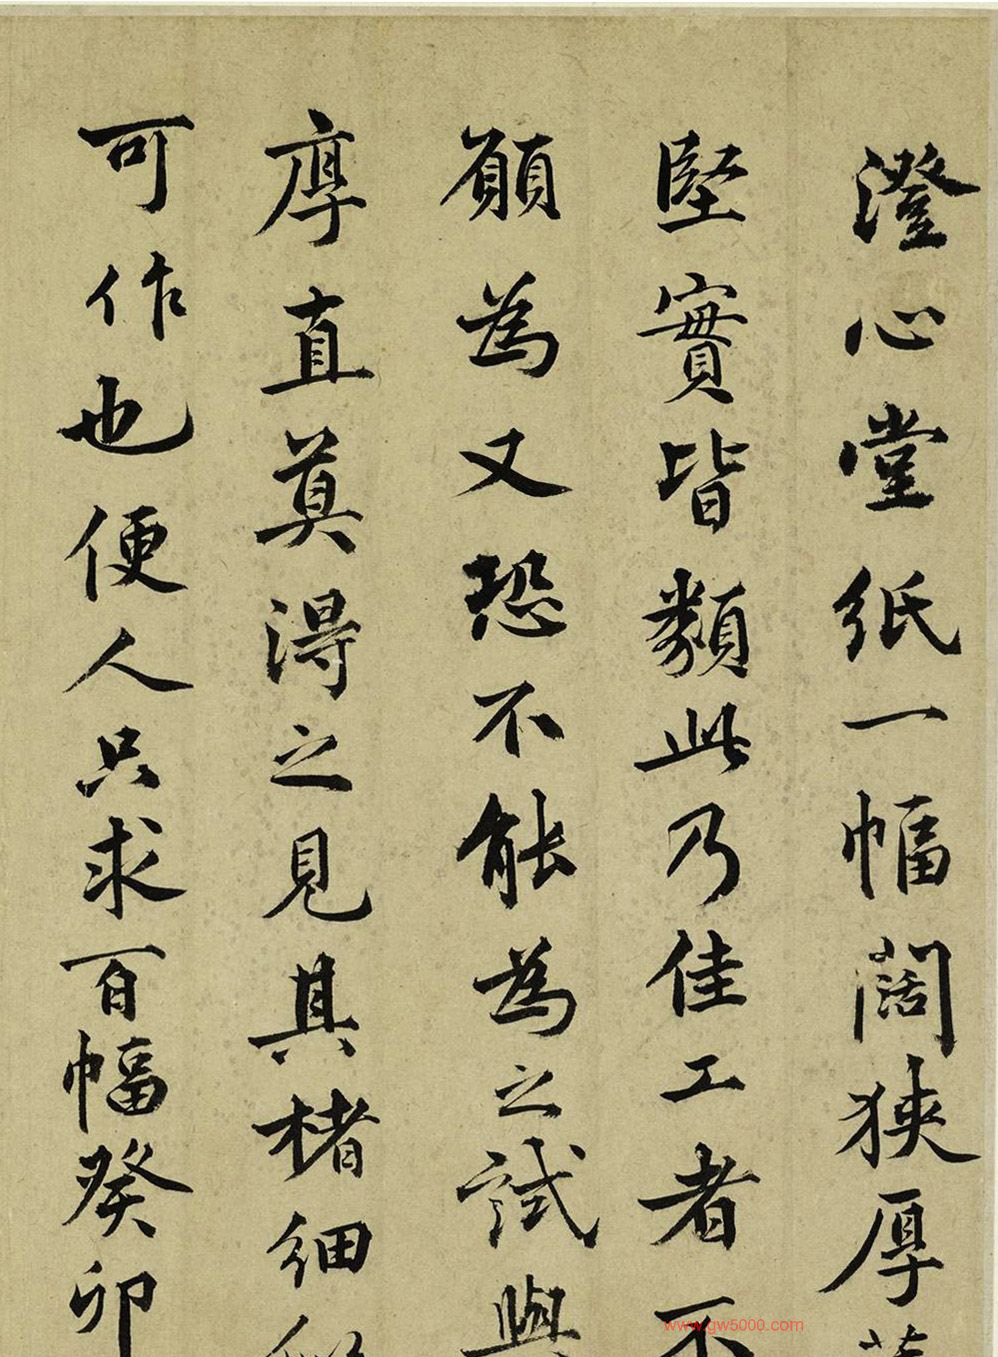 澄心堂紙一幅闊狹厚
堅實皆類此乃佳工者不
願為又恐不能為之試與
厚直莫得之見其楮細
可作也便人只求百幅癸卯
www.gw5000.com